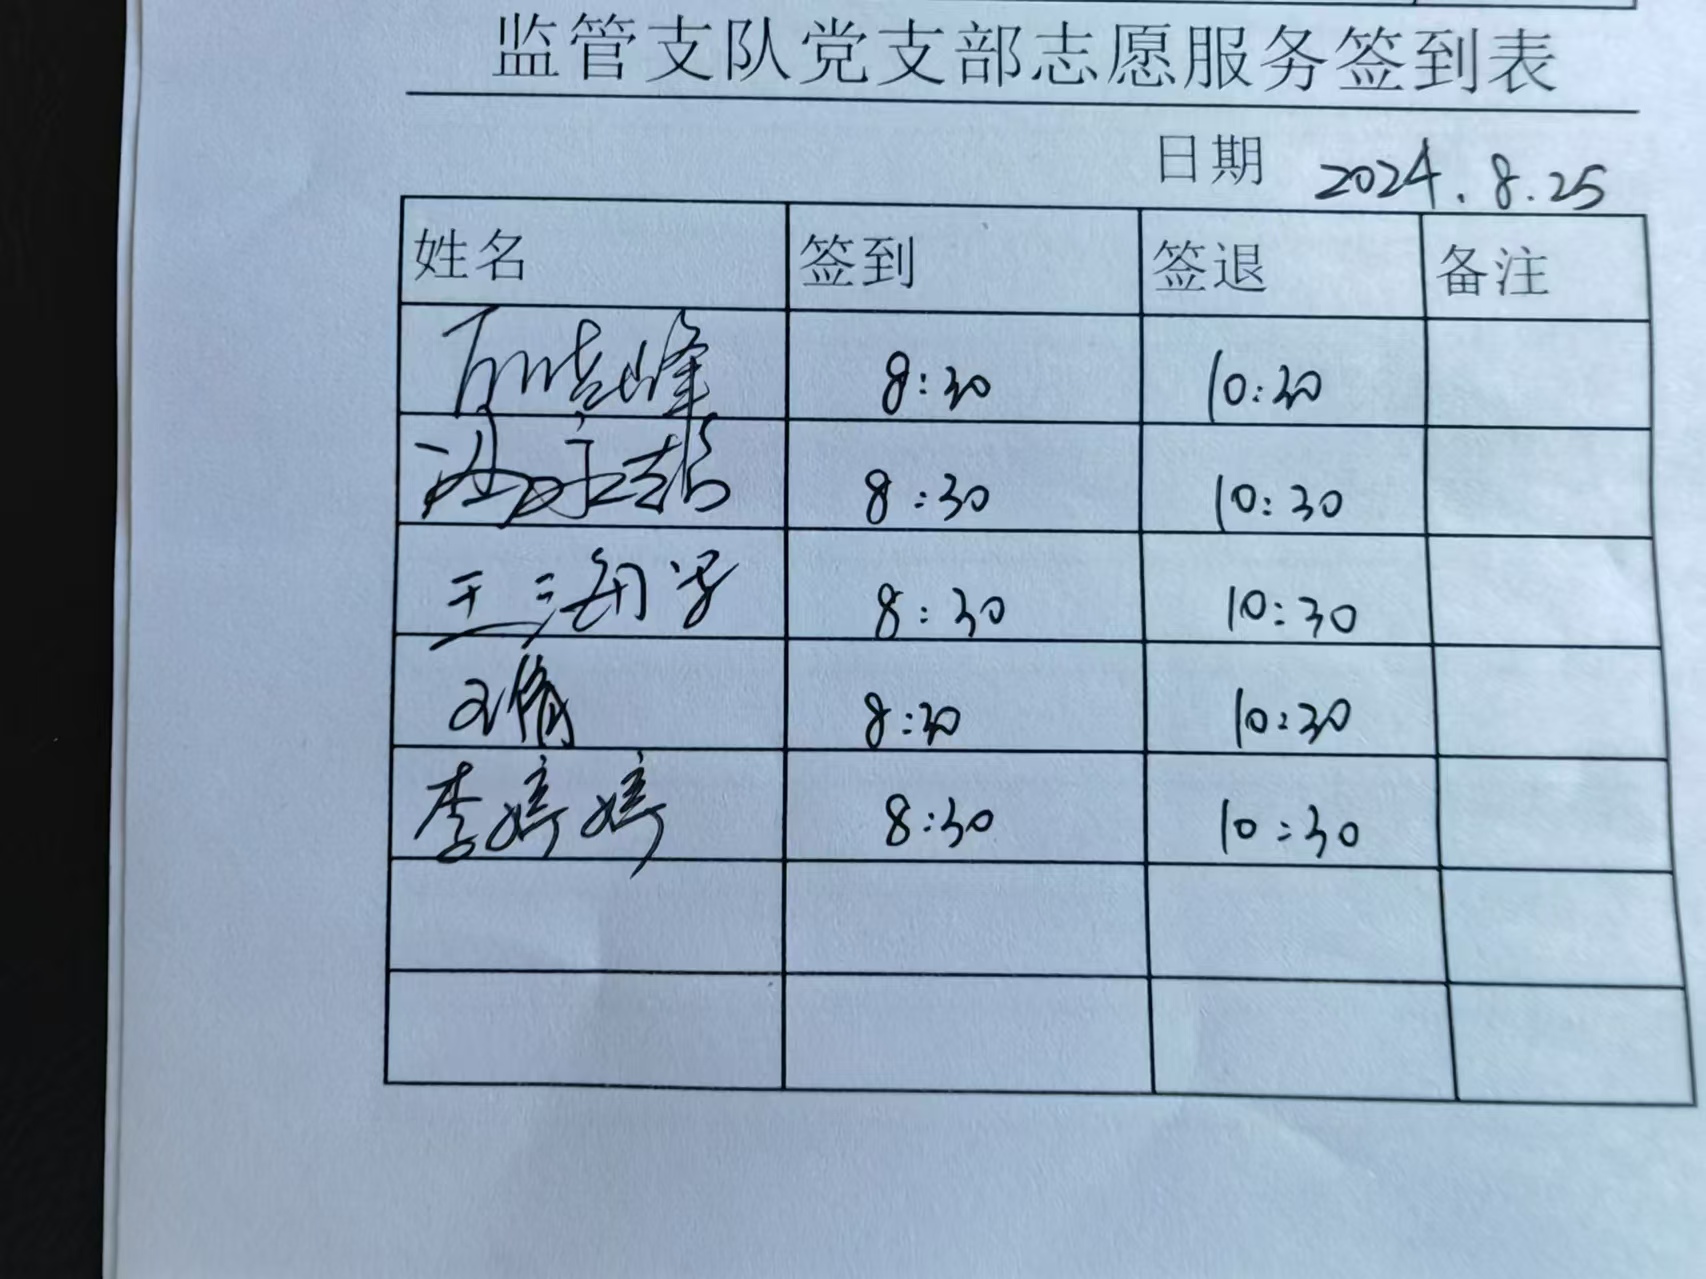 监管支队党支部志愿服务签到表
日期 2024.8.25
姓名 签到 签退 备注
8:30 10:30
8:30 10:30
王 8:30 10:30
8:30 10:30
李婷婷 8:30 10:30